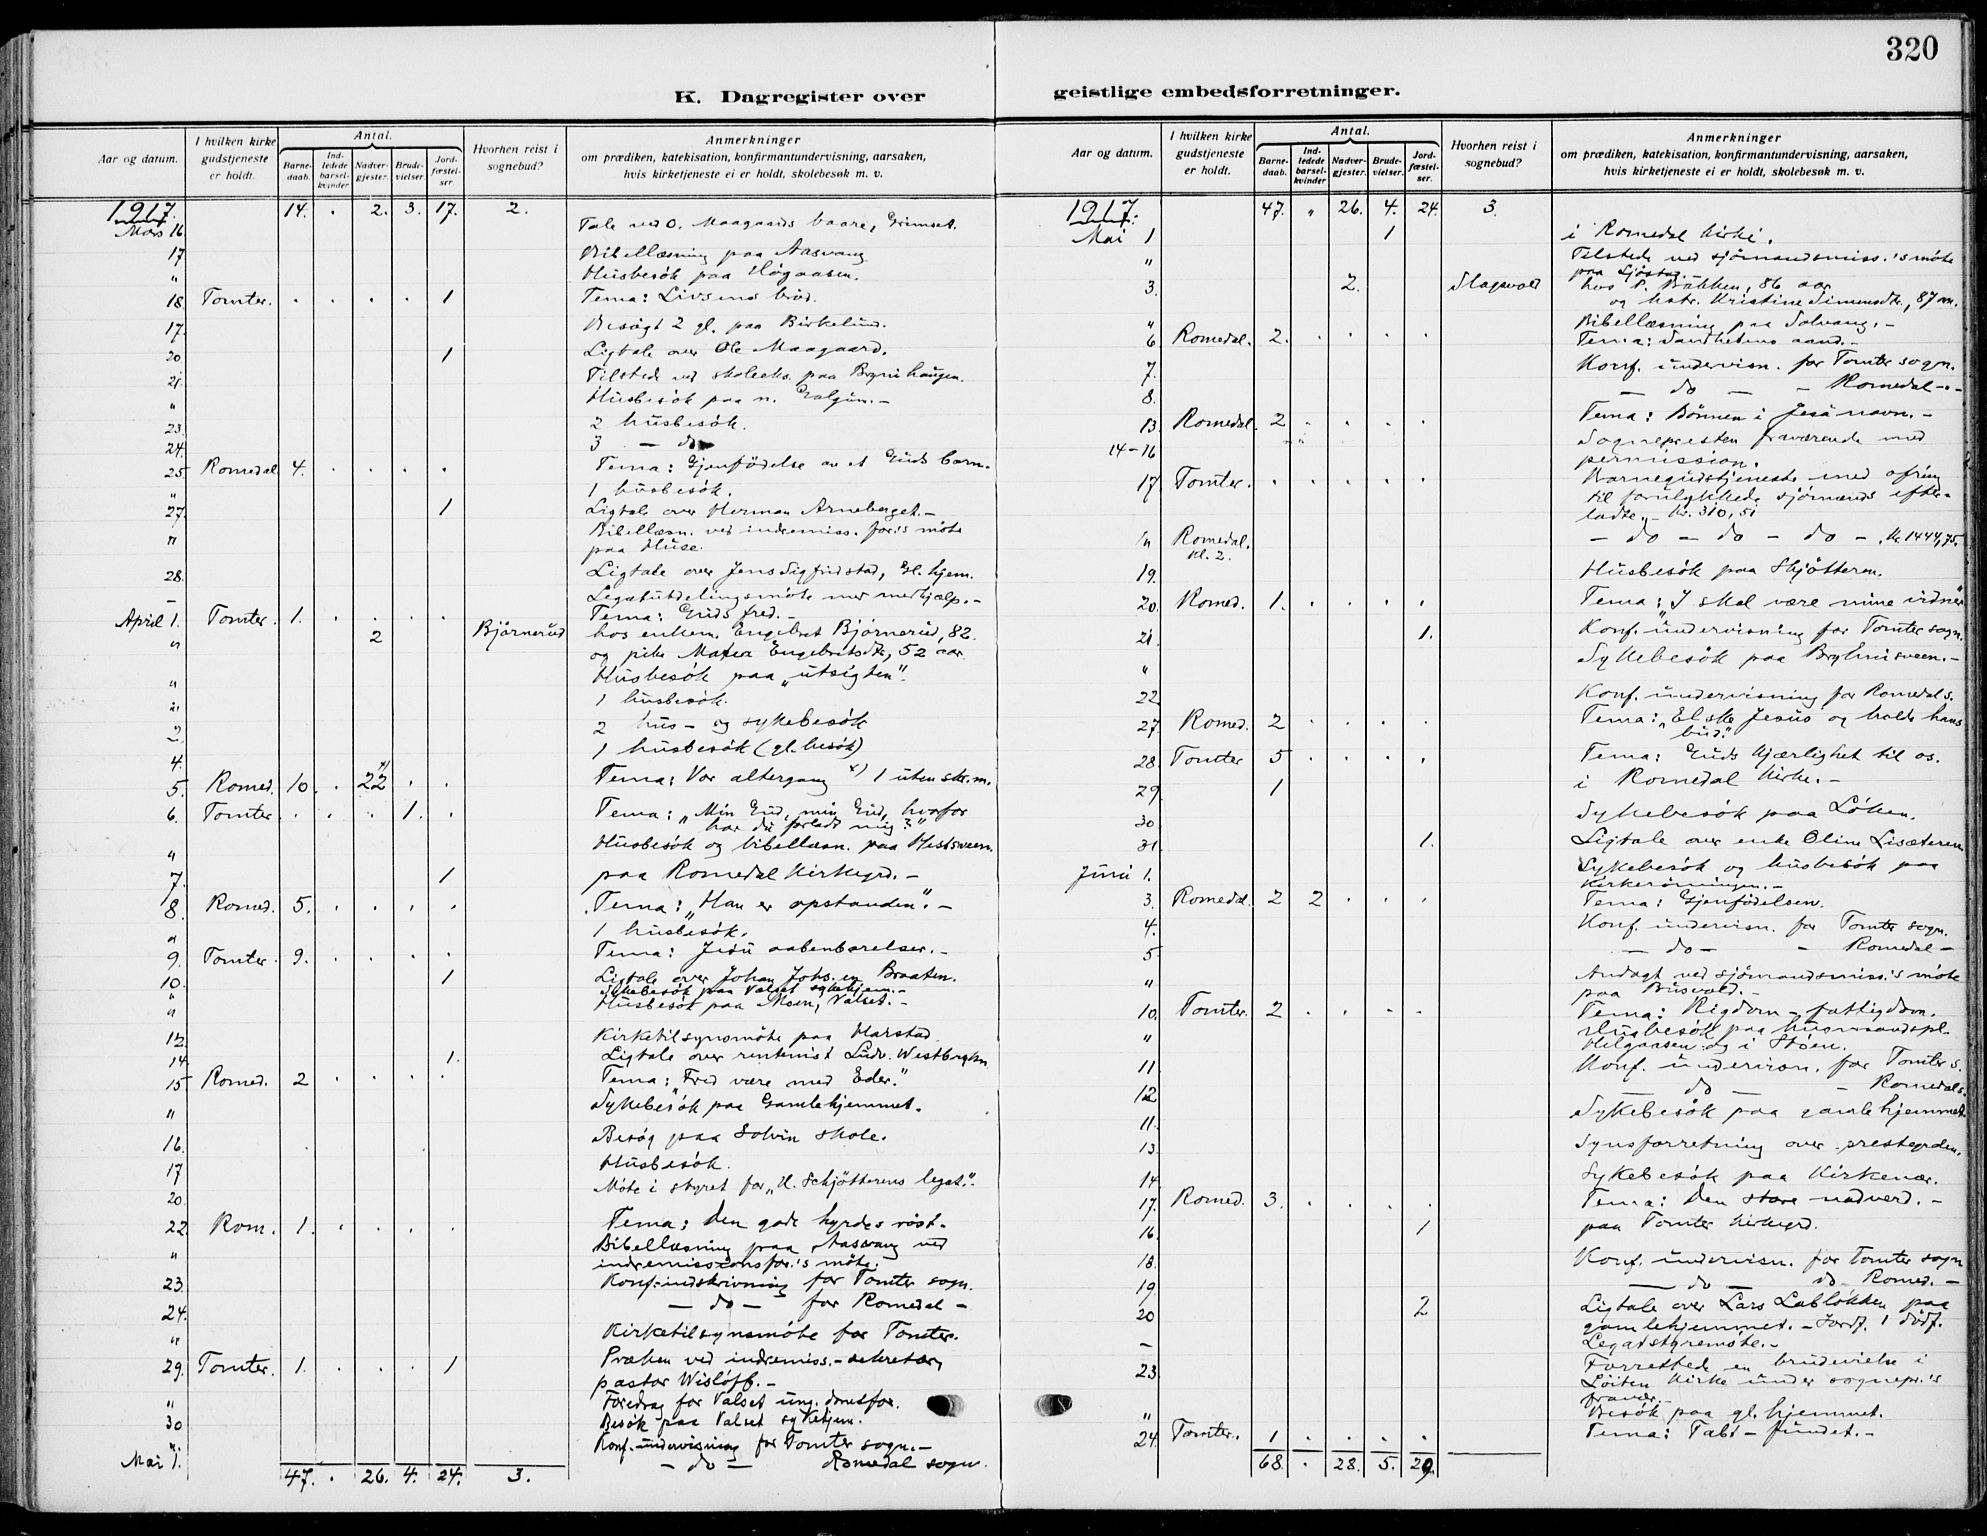 320
K. Dagregister over geistlige embedsforretninger.
Aar og datum. I hvilken kirke gudstjeneste er holdt. Antal. Barne-daab. Ind-ledede barsel-kvinder Nadver-gjester. Brude-vielser. Jord-fæstel-ser. Hvorhen reist i sognebud? Anmerkninger om prædiken, katekisation, konfirmantundervisning, aarsaken, hvis kirketjeneste ei er holdt, skolebesøk m. v.
1917. 14. . 2. 3. 17. 2.
Mars 16 Tale ved O. Maagaards baare, Grimset.
17 Bibellæsning paa Aasvang
" Husbesök paa Högaasen.
18. Tomter. . . . . 1 Tema: Livsens bröd.
17. Besögt 2 gl. paa Birkelund.
20 1 Ligtale over Ole Maagaard.
21. Tilstede ved skoleeks. paa Brynihaugen.
" Husbesök paa n. Galgun. -
23. 2 husbesök.
24. 3 - do -
25. Romedal 4. . . . . Tema: Gjenfödelse av et Guds barn.
" 1 husbesök.
27. 1 Ligtale over Herman Arneberget. -
" Bibellæsn. ved indremiss. for.'s möte
paa Huse.
28. Ligtale over Jens Sigfridstad, Gl. hjem.
- Legatutdelingsmöte med medhjælp. -
April 1. Tomter. 1. . . . . Tema: Guds fred. -
" 2 Björnerud hos enkem. Engebret Björnerud, 82.
og pike Matea Engebretsdtr., 52 aar.
" Husbesök paa "utsigten".
" 1 husbesök.
2. 2 hus- og sykebesök
4. 1 husbesök (gl. besök)
5. Romed. 10. . 22 x) . . Tema: Vor altergang x) 1 uten skr.m.
6. Tomter . . . 1. . Tema: "Min Gud, min Gud, hvorfor
har du forladt mig?"
" Husbesök og bibellæsn. paa Hestsveen.
7. 1 paa Romedal Kirkegrd. -
8. Romed. 5. . . . . Tema: "Han er opstanden". -
" 1 husbesök.
9. Tomter. 9. . . . . Tema: Jesu aabenbarelser. -
10. 1 Ligtale over Johan Johs.en Braaten.
" Sykebesök paa Valset sykehjem. -
" Husbesök paa Moen, Valset. -
12. Kirketilsynsmöte paa Harstad
14. 1. Ligtale over rentenist Ludv. Westberghn
15 Romed. 2 . . . . Tema: "Fred være med Eder."
" Sykebesök paa Gamlehjemmet.
16. Besög paa Solvin skole.
17 Husbesök.
20 Möte i styret for "H. Schjötterens legat."
22. Rom. 1. . . . . Tema: Den gode hyrdes röst.
" Bibellæsning paa Aasvang ved
indremissionsfor.'s möte.
23. Konf.indskrivning for Tomter sogn.
24. - do - for Romedal -
" Kirketilsynsmöte for Tomter.
29. Tomter. 1. . . . 1 Præken ved indremiss.-sekretær,
pastor Wislöff. -
" Foredrag for Valset ung.domsfor.
30 Besök paa Valset sykehjem.
" Konf.undervisning for Tomter sogn. -
Mai 1. - do - Romedal sogn.
47. . 26. 4. 24. 3.
Aar og datum. I hvilken kirke gudstjeneste er holdt. Antal. Barne-daab. Ind-ledede barsel-kvinder Nadver-gjester. Brude-vielser. Jord-fæstel-ser. Hvorhen reist i sognebud? Anmerkninger om prædiken, katekisation, konfirmantundervisning, aarsaken, hvis kirketjeneste ei er holdt, skolebesøk m. v.
1917. 47. " 26. 4. 24. 3.
Mai 1 1 i Romedal Kirke.
" Tilstede ved sjömandsmiss.'s möte
paa Sjöstad. -
3. 2. Slagsvold hos P. Bakken, 86 aar
og hstr. Kristine Simensdtr., 87 aar.
" Bibellæsning paa Solvang. -
6 Romedal. 2. . . . . Tema: Sandhetens aand. -
7. Konf. undervisn. for Tomter sogn.
8. - do - - Romedal -
13. Romedal. 2 . . . . Tema: Bönnen i Jesu navn. -
14-16 Sognepresten fraværende med
permission.
17 Tomter. . . . . . Barnegudstjeneste med ofring
til forulykkede sjömænds efter-
ladte. - Kr. 310,51
" Romedal. kl. 2. - do - do - do - Kr. 1444,75.
19. Husbesök paa Skjötteren.
20. Romed. 1. . . . . Tema: "I skal være mine vidner"
21 1. Konf. undervisning for Tomter sogn.
" Sykebesök paa Brylnisveen. -
22 Konf. undervisning for Romedal s.
27. Romed. 2 . . . . Tema: "Elske Jesus og holde hans
bud."
28. Tomter 5 . . . . Tema: Guds kjærlighet til os.
29. 1 i Romedal Kirke. -
30 Sykebesök paa Löken.
31 1. Ligtale over enke Oline Lisæteren
Juni 1. Sykebesök og husbesök paa
Kirkerönningen. -
3. Romedal. 2 2 . . . Tema: Gjenfödelsen.
4. Konf. undervisn. for Tomter sogn.
5 - do - - Romedal -
" Andagt ved sjömandsmiss.'s möte
paa Busvold. -
10. Tomter. 2 . . . . Tema: Rigdom - fattigdom.
" Husbesök paa husmandspl.
Hilgaasen og i Stöen.
11 Konf. undervisn. for Tomter s.
12 - do - - Romedal s.
11. Sykebesök paa gamlehjemmet
13. Synsforretning over prestegrden.
14. Sykebesök paa Kirkenær.
17. Romed. 3. . . . . Tema: Den store nadverd. -
16. 1 paa Tomter kirkegrd.
18. Konf. undervisn. for Tomter sogn
19 - do - do Romed. -
20 2 Ligtale over Lars Lablökken paa
gamlehjemmet. - Jordf. 1 dödf.
- Legatstyremöte. -
23. Forrettede en brudevielse i
Löiten Kirke under sognepr.'s
fravær. -
" Besök paa gl. hjemmet.
24. Tomter. 1 . . . . Tema: Tabt - fundet. -
68. . 28. 5. 29.